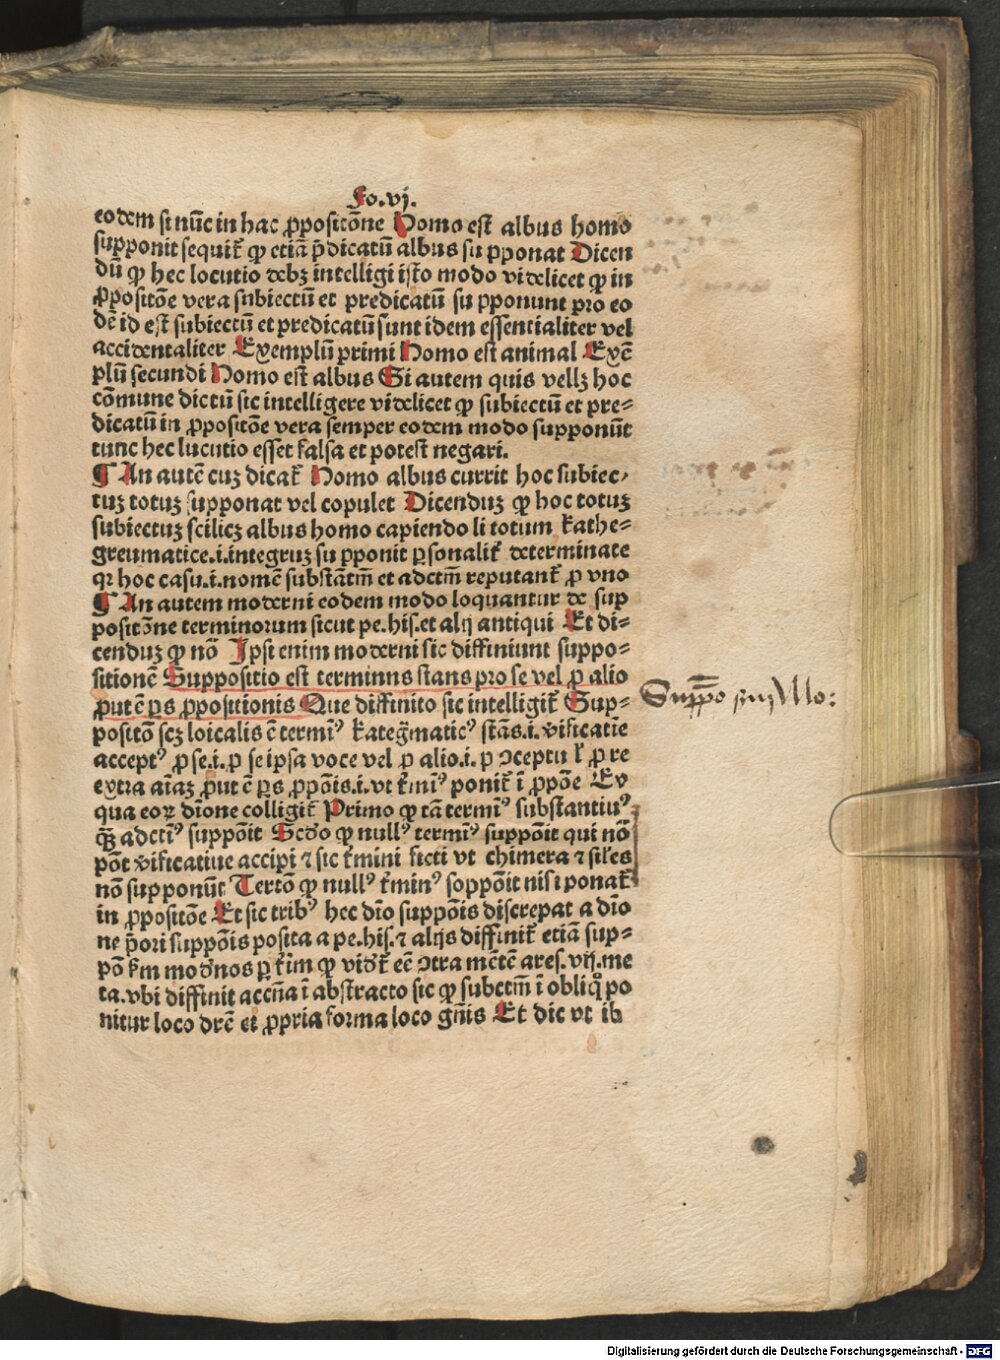 Fo.vj.
eodem si nūc in hac ꝓpositōne Homo est albus homo
supponit sequiť ꝙ etiā p̄dicatū albus su pponat Dicen
dū ꝙ hec locutio debꝫ intelligi isto modo videlicet ꝙ in
ꝓpositōe vera snbiectū et predicatū su pponunt pro eo
dē id est subiectū et predicatū sunt idem essentialiter vel
accidentaliter Exemplū primi Homo est animal Exē
plū secundi Homo est albus Si autem quis vellꝫ hoc
cōmune dictū sic intelligere videlicet ꝙ subiectū et pre⸗
dicatū in ꝓpositōe vera semper eodem modo supponūt
tunc hec lucutio esset falsa et potest negari.
¶ An autē cuꝫ dicať Homo albus currit hoc subiec⸗
tuꝫ totuꝫ supponat vel copulet Dicenduꝫ ꝙ hoc totuꝫ
subiectuꝫ scilicꝫ albus homo capiendo li totum kathe⸗
greumatice.i.integruꝫ su pponit ꝑsonaliť determinate
qꝛ hoc casu.i.nomē substātm̄ et adctm̄ reputanť ꝓ vno
¶ An autem moderni eodem modo loquantur de sup
positōne terminorum sicut pe.his.et alij antiqui Et di⸗
cenduꝫ ꝙ nō Ipsi enim moderni sic diffiniunt suppo⸗
sitionē Suppositio est terminns stans pro se vel ꝓ alio
ꝓut ē ꝑs ꝓpositionis Que diffinito sic intelligiť Sup⸗
positō scꝫ loicalis ē termiꝰ kateg̈maticꝰ stās.i. v̄ificatie
acceptꝰ ꝓ se.i. ꝓ se ipsa voce vel ꝓ alio.i. ꝓ ↄceptu ľ ꝓ re
extra aīaꝫ ꝓut ē ꝑs ꝓpōis.i. vt ťmiꝰ poniť ī ꝓpōe Ex
qua eoꝝ dīone colligiť Primo ꝙ tā termīꝰ substantiuꝰ
qꝫ̄ adctīꝰ suppōit Scďo ꝙ nullꝰ termīꝰ suppōit qui nō
pōt v̄ificatiue accipi ⁊ sic ťmini ficti vt chimera ⁊ siľes
nō supponūt Tertō ꝙ nullꝰ ťminꝰ soppōit nisi ponať
in ꝓpositōe Et sic tribꝰ hec dīo suppōis discrepat a dīo
ne p̄ori suppōis posita a pe.his.⁊ alijs diffiniť etiā sup⸗
pō ẜm moďnos ꝑ ťim ꝙ viďť eē ↄtra mētē ares.vij.me
ta.vbi diffinit accn̄a ī abstracto sic ꝙ subctm̄ ī obliqͦ po
nitur loco drē et ꝓpria forma loco gn̄is Et dic vt ib